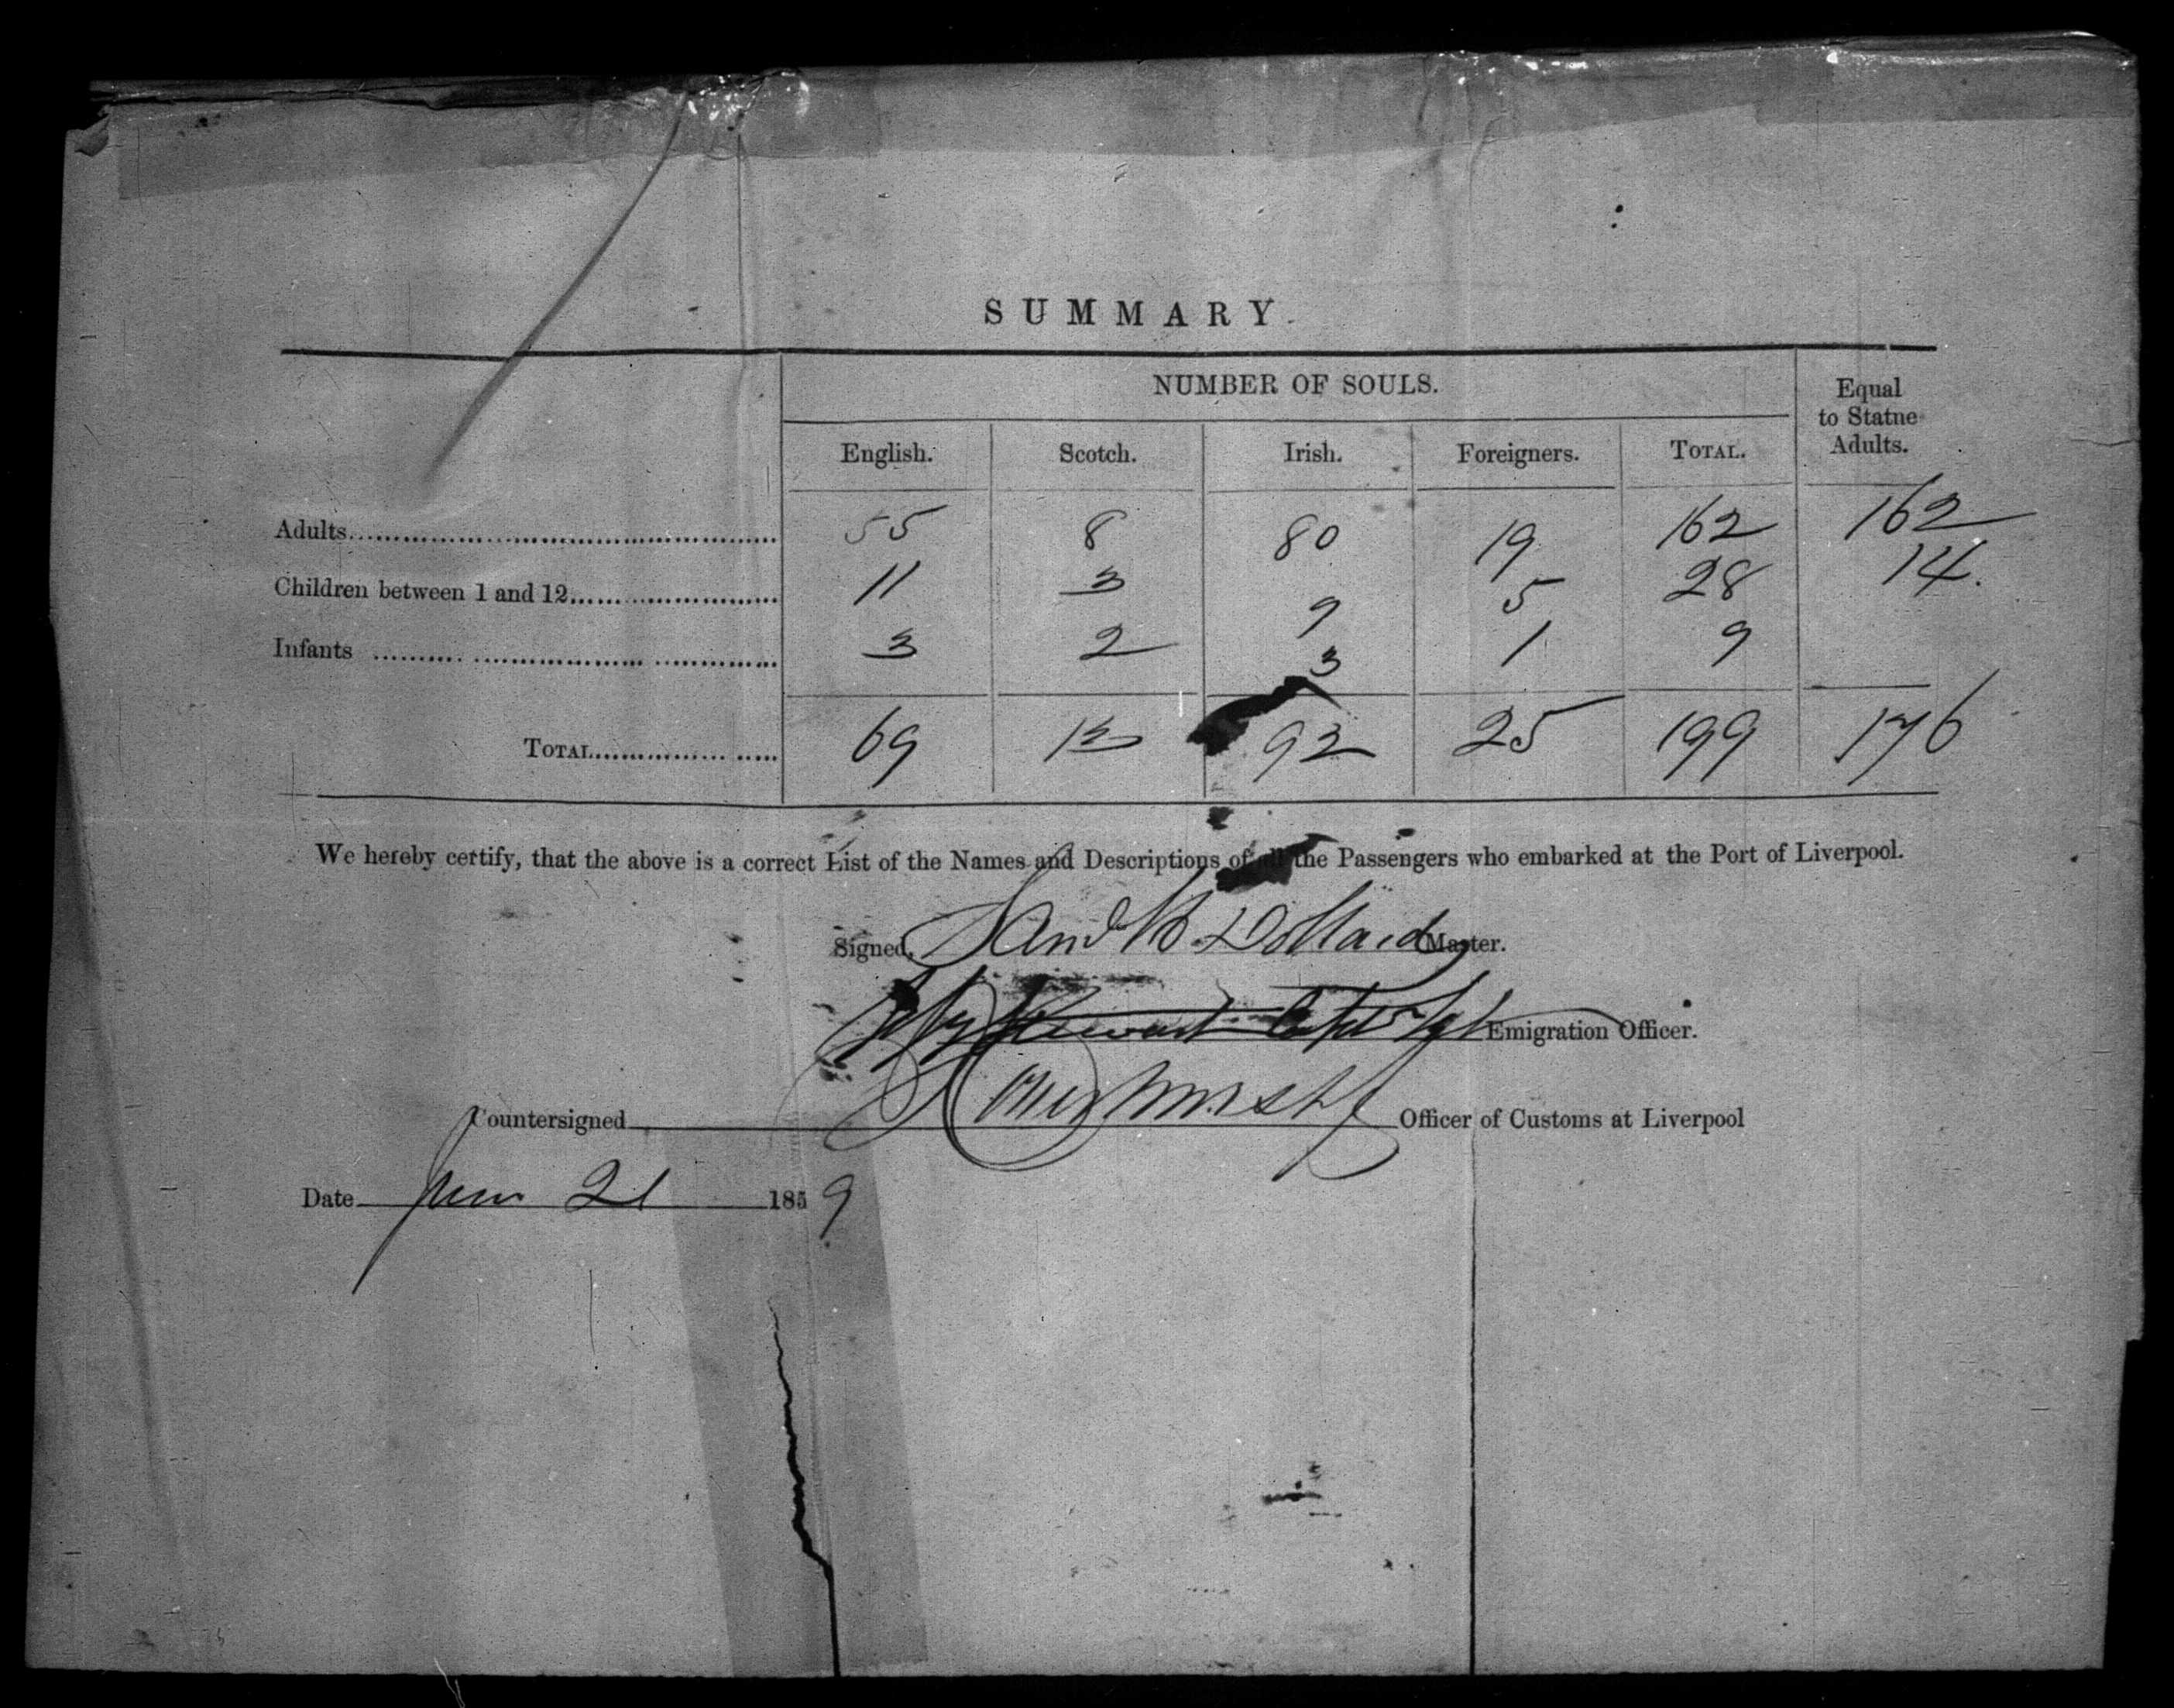 SUMMARY.
NUMBER OF SOULS.
Equal
to Statne
Adults.
English. Scotch. Irish. Foreigners. TOTAL.
Adults 55 8 80 19 162 162
Children between 1 and 12 11 3 9 5 28 14.
Infants 3 2 3 1 9
TOTAL 69 13 92 25 199 176
We hereby certify, that the above is a correct List of the Names and Descriptions of all the Passengers who embarked at the Port of Liverpool.
Signed, Dollard Master.
Emigration Officer.
Countersigned Officer of Customs at Liverpool
Date June 21 1859